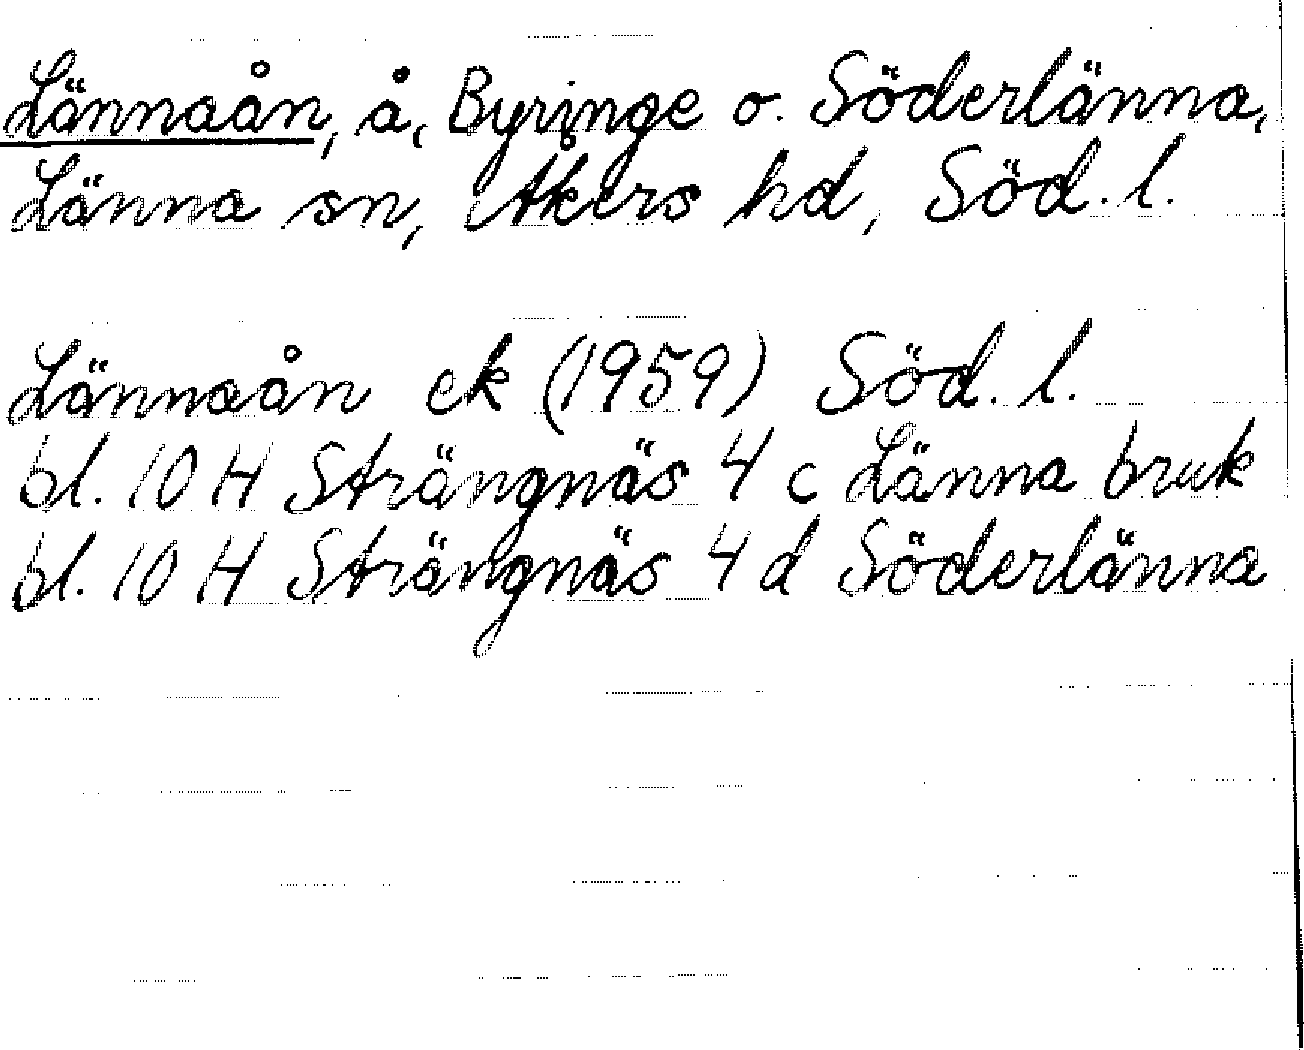 Lännaån, å, Byringe o. Söderlänna,
Länna sn, Åkers hd, Söd. l.
Lännaån ek (1959) Söd. l.
bl. 10 H Strängnäs 4 c Länna bruk
bl. 10 H Strängnäs 4 d Söderlänna